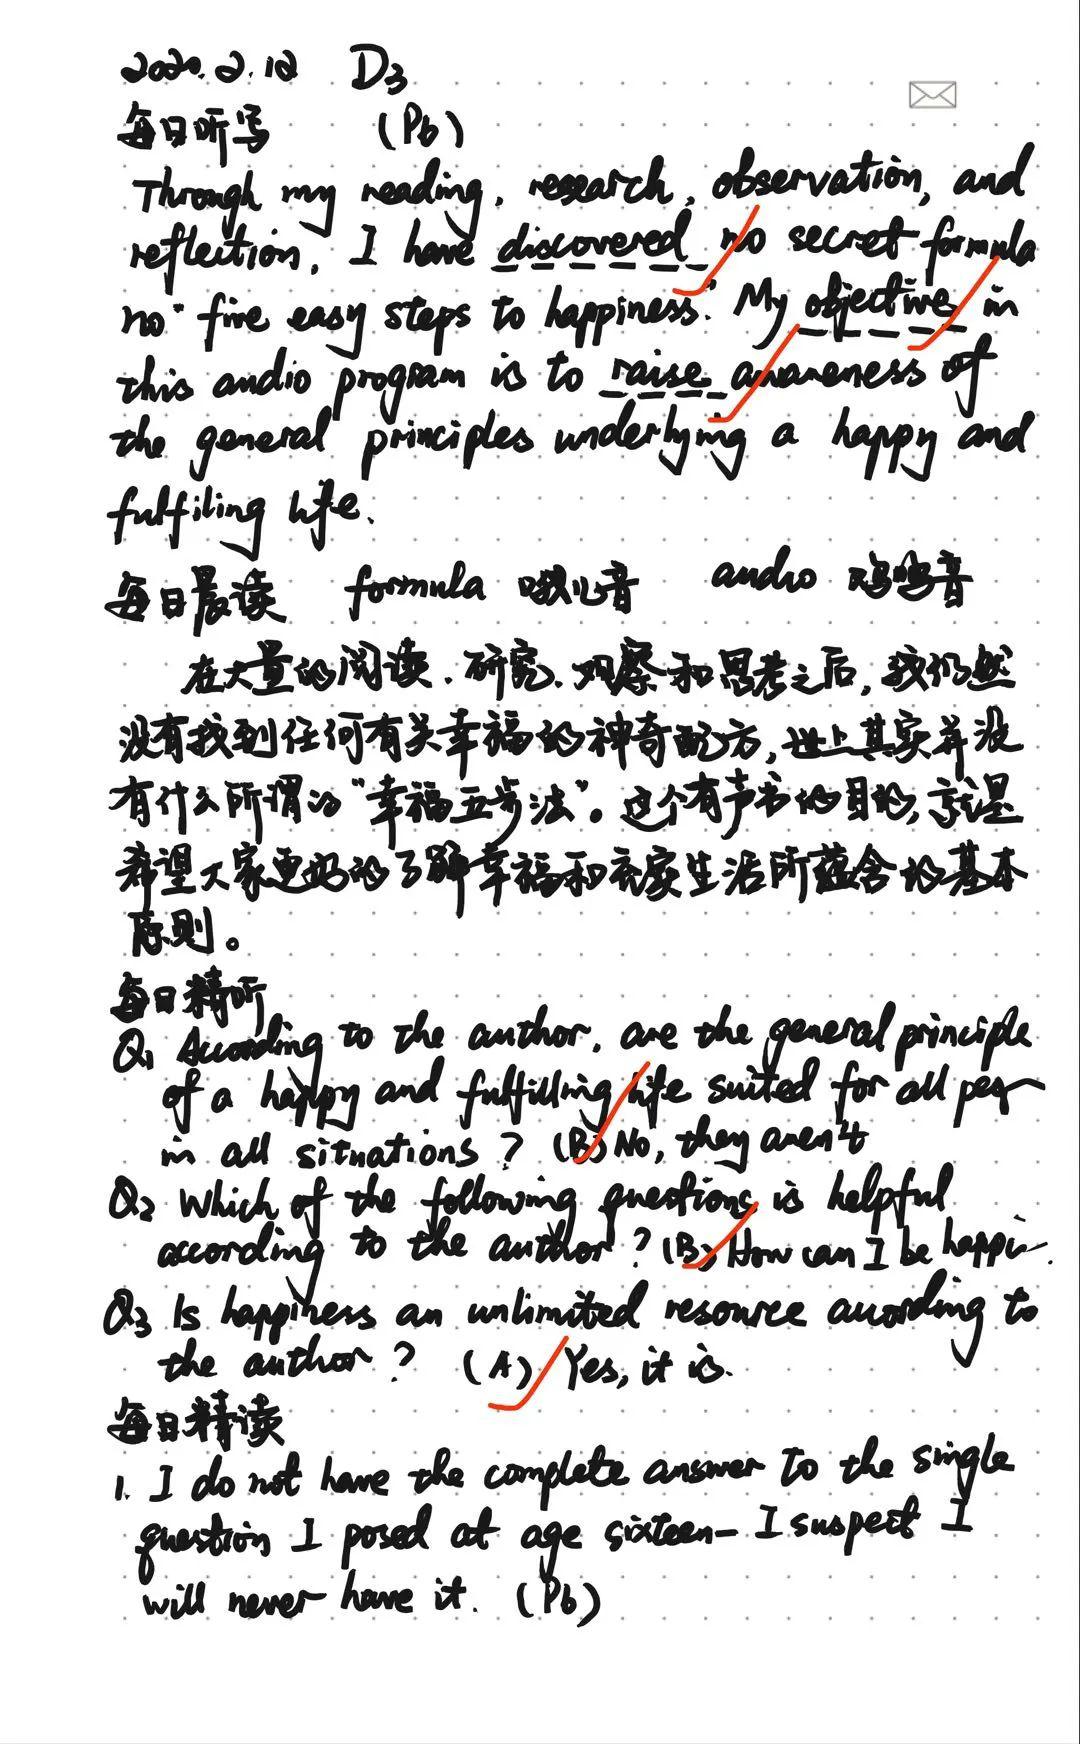 2020.2.12 D3
每日听写 (P6)
Through my reading, research, observation, and
reflection, I have discovered no secret formula
no "five easy steps to happiness." My objective in
this audio program is to raise awareness of
the general principles underlying a happy and
fulfiling life.
每日晨读 formula 哦儿音 audio 呜音
在大量的阅读、研究、观察和思考之后,我仍然
没有找到任何有关幸福的神奇配方,世上其实并没
有什么所谓的“幸福五步法”。这个有声书的目的,就是
希望大家更好的了解幸福和充实生活所蕴含的基本
原则。
每日精听
Q1 According to the author, are the general principle
of a happy and fulfilling life suited for all per
in all situations? (B) No, they aren't
Q2 Which of the following questions is helpful
according to the author? (B) How can I be happi
Q3 Is happiness an unlimited resource according to
the author? (A) Yes, it is.
每日精读
1. I do not have the complete answer to the single
question I posed at age sixteen—I suspect I
will never have it. (P6)